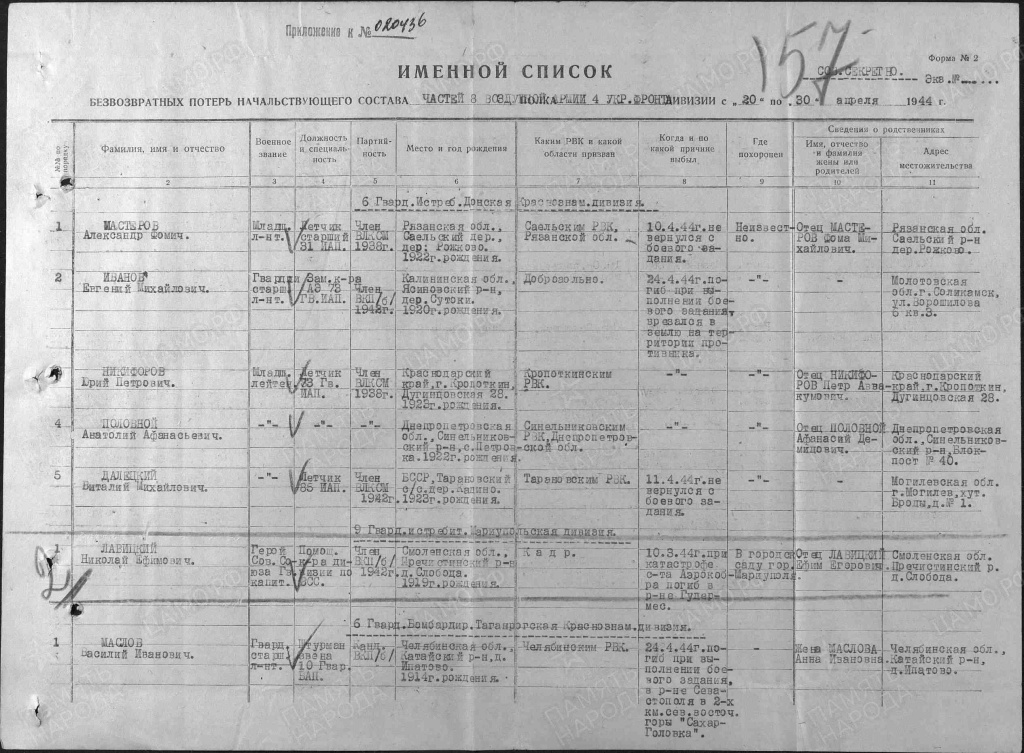 Приложение к № 020436
157
Форма № 2
СОВ.СЕКРЕТНО.
Экз.№
ИМЕННОЙ СПИСОК
БЕЗВОЗВРАТНЫХ ПОТЕРЬ НАЧАЛЬСТВУЮЩЕГО СОСТАВА ЧАСТЕЙ 8 ВОЗДУШНОЙ АРМИИ 4 УКР.ФРОНТА ДИВИЗИИ с „20" по „30" апреля 1944 г.
№№ по порядку
Фамилия, имя и отчество
Военное звание
Должность и специальность
Партийность
Место и год рождения
Каким РВК и какой области призван
Когда и по какой причине выбыл
Где похоронен
Сведения о родственниках
Имя, отчество и фамилия жены или родителей
Адрес местожительства
2 3 4 5 6 7 8 9 10 11
6 Гвард.Истреб.Донская Краснознам.дивизия.
1 МАСТЕРОВ Младш. Летчик Член Рязанская обл., Саельским РВК, 10.4.44г.не Неизвест- Отец МАСТЕ- Рязанская обл.
Александр Фомич. л-нт. старший ВЛКСМ Саельский дер., Рязанской обл. вернулся с но. РОВ Фома Ми- Саельский р-н
31 ИАП. 1938г. дер: Рожково. боевого за- хайлович. дер.Рожково.
1922г.рождения. дания.
2 ИВАНОВ Гвардии Зам.к-ра Калининская обл., Добровольно. 24.4.44г.по- -"- - Молотовская
Евгений Михайлович. старш. АЭ 73 Член Ясиновский р-н, гиб при вы- обл.г.Соликамск,
л-нт. ГВ.ИАП. ВКП/б/ дер.Сутоки. полнении бое- ул.Ворошилова
1942г. 1920г.рождения. вого задания, 6 кв.3.
врезался в
землю на тер-
ритории про-
тивника.
НИКИФОРОВ Младш. Летчик Член Краснодарский Кропоткинским -"- -"- Отец НИКИФО- Краснодарский
Юрий Петрович. лейтен 73 Гв. ВЛКСМ край,г.Кропоткин, РВК. РОВ Петр Авва- край,г.Кропоткин,
ИАП. 1938г. Дугинцовская 28. кумович. Дугинцовская 28.
1923г.рождения.
4 ПОЛОВНОЙ -"- -"- -"- Днепропетровская Синельниковским -"- -"- Отец ПОЛОВНОЙ Днепропетровская
Анатолий Афанасьевич. обл.,Синельников- РВК,Днепропетров- Афанасий Де- обл.,Синельников-
ский р-н,с.Петров- ской обл. мидович. ский р-н,Блок-
ка.1922г.рождения. пост № 40.
5 ДАЛЕЦКИЙ -"- Летчик Член БССР,Тарановский Тарановским РВК. 11.4.44г.не -"- - Могилевская обл.
Виталий Михайлович. 85 ИАП. ВЛКСМ с/с.дер.Кадино. вернулся с г.Могилев,хут.
1942г. 1923г.рождения. боевого за- Броды,д.№ 1.
дания.
9 Гвард.истребит.Мариупольская дивизия.
1 ЛАВИЦКИЙ Герой Помощ. Член Смоленская обл., К а д р . 10.3.44г.при В городск Отец ЛАВИЦКИЙ Смоленская обл.
Николай Ефимович. Сов.Со- к-ра ди- ВКП/б/ Пречистинский р-н катастрофе саду гор. Ефим Егорович. Пречистинский р.
юза Гв. визии по 1942г. д.Слобода. с-та Аэрокоб- Мариуполя. д.Слобода.
капит. ВСС. 1919г.рождения. ра погиб в
р-не Гудер-
мес.
6 Гвард.Бомбардир.Таганрогская Краснознам.дивизия.
1 МАСЛОВ Гвард. Штурман Канд. Челябинская обл., Челябинским РВК. 24.4.44г.по- -"- Жена МАСЛОВА Челябинская обл.,
Василий Иванович. старш. звена ВКП/б/ Катайский р-н,д. гиб при вы- Анна Ивановна. Катайский р-н,
л-нт. 10 Гвар. Ипатово. полнении бое- д.Ипатово.
БАП. 1914г.рождения. вого задания,
в р-не Сева-
стополя в 2-х
км.сев.восточ.
горы "Сахар-
Головка".